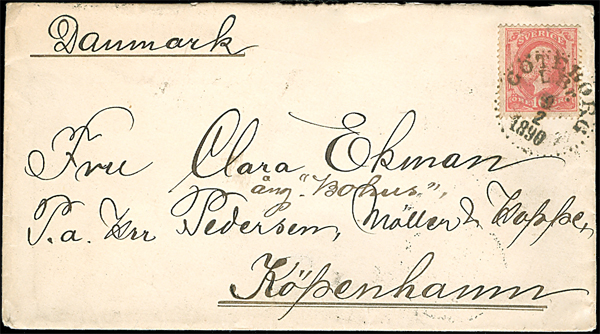 Danmark
SVERIGE
GÖTEBORG
L.Br.
9
2
1890
Fru Clara Ekman
ång. "Bohus",
P.a. Hrr Pedersen, Möller & Hoppe,
Köpenhamn